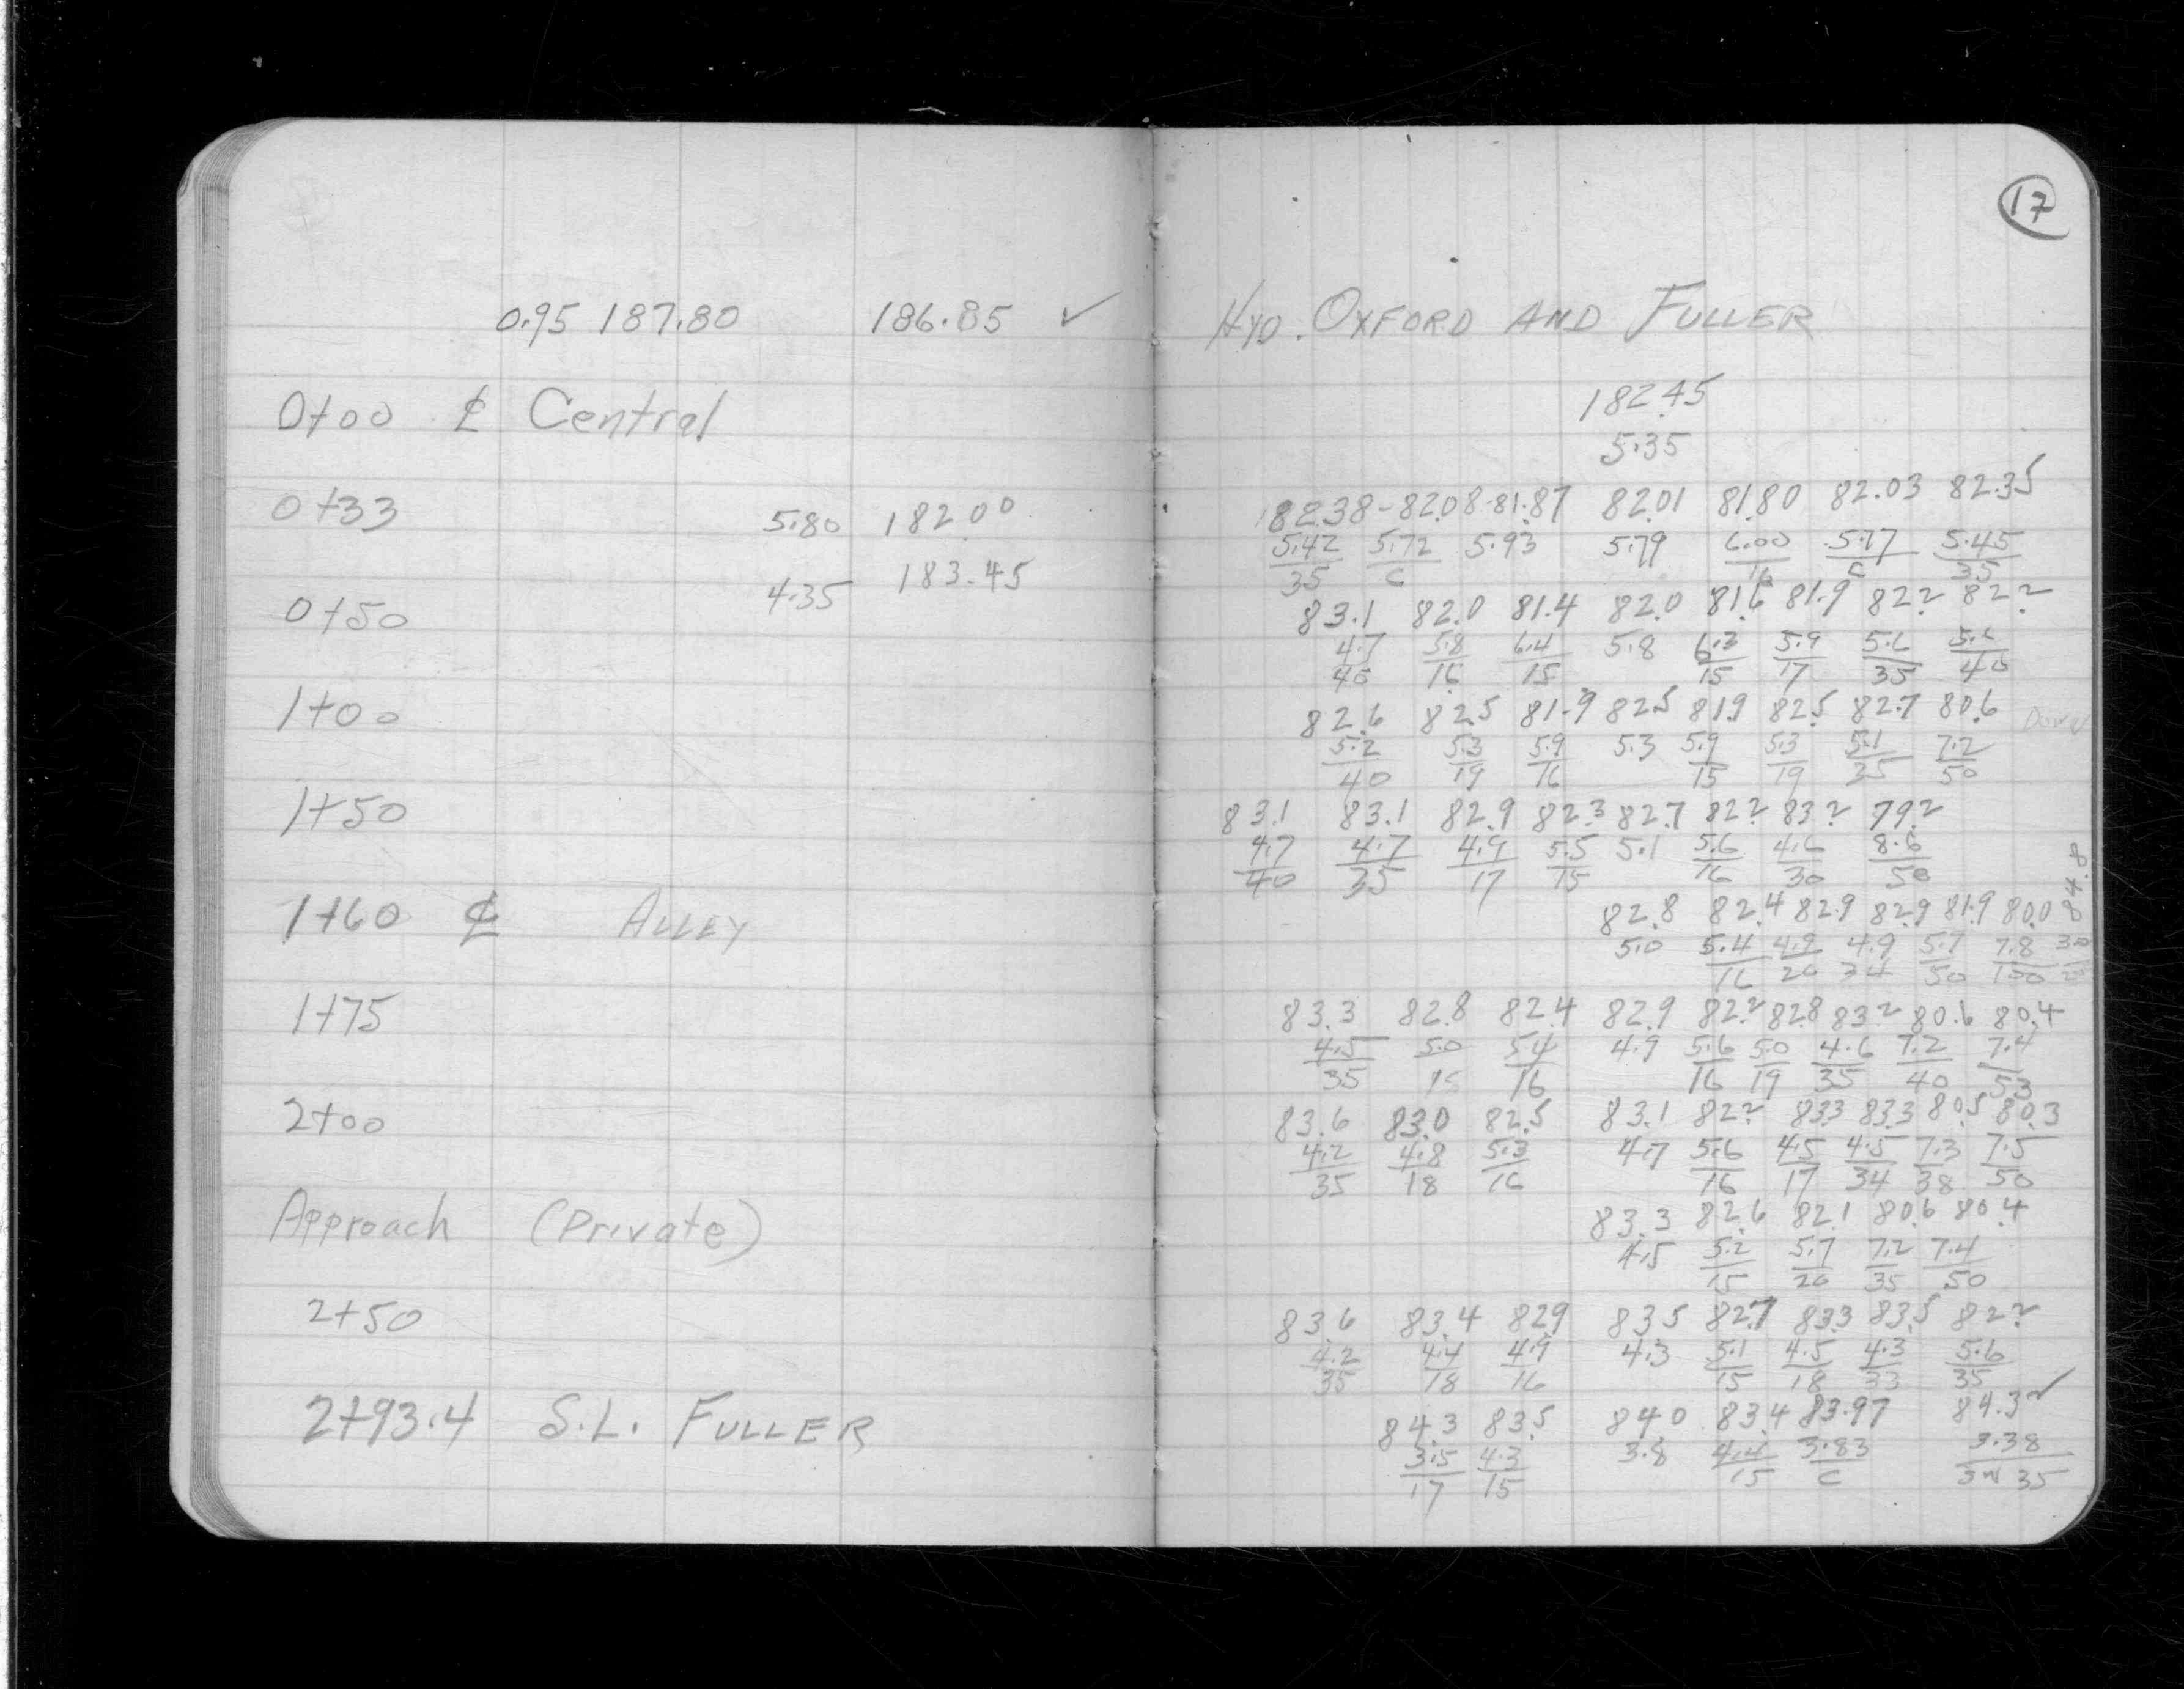 17
0.95 187.80 186.85 ✓ Hyd. OXFORD AND FULLER
0+00 ₵ Central 182.45
5.35
0+33 5.80 182.00 182.38-82.08-81.87 82.01 81.80 82.03 82.35
5.42 5.72 5.93 5.79 6.00 5.77 5.45
4.35 183.45 35 C 16 C 35
0+50 83.1 82.0 81.4 82.0 81.6 81.9 82.2 82.2
4.7 5.8 6.4 5.8 6.3 5.9 5.6 5.6
40 16 15 15 17 35 40
1+00 82.6 82.5 81.9 82.5 81.9 82.5 82.7 80.6
5.2 5.3 5.9 5.3 5.9 5.3 5.1 7.2
40 19 16 15 19 35 50
1+50 83.1 83.1 82.9 82.3 82.7 82.2 83.2 79.2
4.7 4.7 4.9 5.5 5.1 5.6 4.6 8.6
40 35 17 15 16 30 50
1+60 ₵ ALLEY 82.8 82.4 82.9 82.9 81.9 80.0 84.8
5.0 5.4 4.9 4.9 5.9 7.8 3.0
16 20 34 50 100
1+75 83.3 82.8 82.4 82.9 82.2 82.8 83.2 80.6 80.4
4.5 5.0 5.4 4.9 5.6 5.0 4.6 7.2 7.4
35 16 16 19 35 40 53
2+00 83.6 83.0 82.5 83.1 82.2 83.3 83.3 80.5 80.3
4.2 4.8 5.3 4.7 5.6 4.5 4.5 7.3 7.5
35 18 16 16 17 34 38 50
Approach (Private) 83.3 82.6 82.1 80.6 80.4
4.5 5.2 5.7 7.2 7.4
15 20 35 50
2+50 83.6 83.4 82.9 83.5 82.7 83.3 83.5 82.2
4.2 4.4 4.9 4.3 5.1 4.5 4.3 5.6
35 18 16 15 18 33 35
2+93.4 S.L. FULLER 84.3 83.5 84.0 83.4 83.97 84.3 ✓
3.5 4.3 3.8 4.4 3.83 3.38
17 15 15 C 35